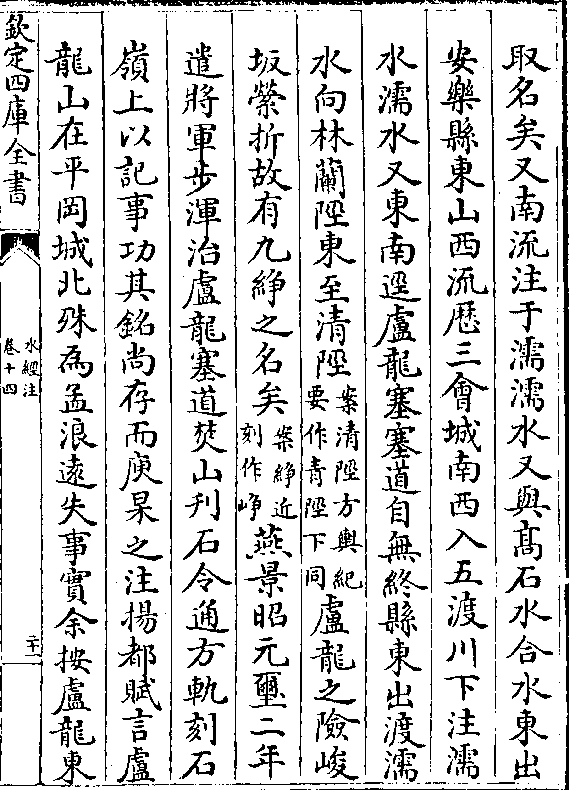 取名矣又南流注于濡濡水又與髙石水合水東出
安樂縣東山西流歴三會城南西入五渡川下注濡
水濡水又東南逕盧龍塞塞道自無終縣東出渡濡
水向林蘭陘東至清陘案清陘方輿紀要作青陘下同盧龍之險峻
坂縈折故有九絣之名矣案絣近刻作崢燕景昭元璽二年
遣將軍步渾治盧龍塞道焚山刋石令通方軌刻石
嶺上以記事功其銘尚存而庾杲之注揚都賦言盧
龍山在平岡城北殊為孟浪逺失事實余按盧龍東
欽定四庫全書
水經注
卷十四
二十